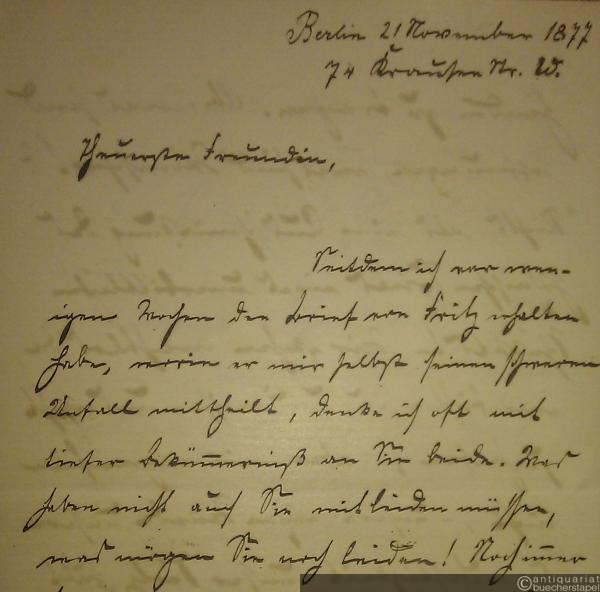 Berlin 21 November 1877
74 Krausen Str. W.
Theuerste Freundin,
Seitdem ich vor wen-
igen Wochen den Brief von Fritz erhalten
habe, worin er mir selbst seinen schweren
Unfall mittheilt, denke ich oft mit
tiefer Bekümmerniß an Sie beide. Was
haben nicht auch Sie mitleiden müssen,
was mögen Sie noch leiden! Noch immer
©antiquariat
buecherstapel